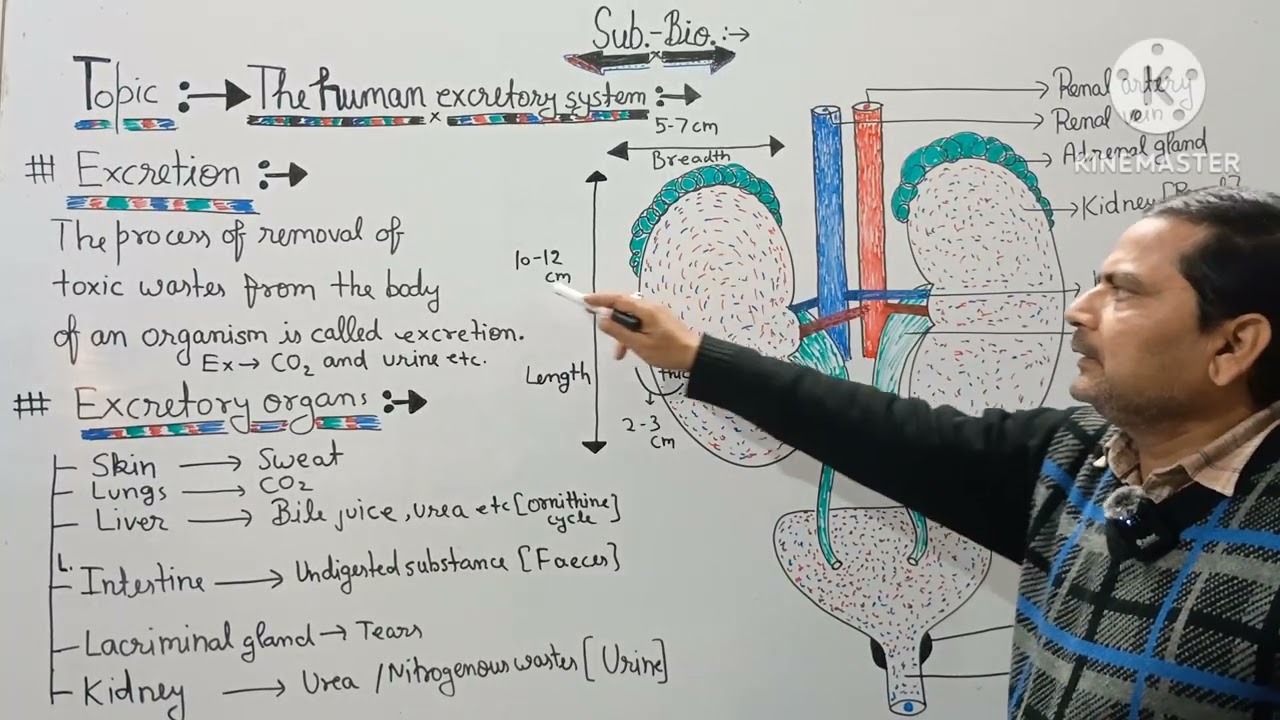 Sub.-Bio.:→
Topic :→ The human excretory system :→
# Excretion :→
The process of removal of
toxic wastes from the body
of an organism is called excretion.
Ex→ CO₂ and urine etc.
# Excretory organs :→
Skin → Sweat
Lungs → CO₂
Liver → Bile juice, urea etc [ornithine
cycle]
L.
Intestine → Undigested substance [Faeces]
Lacriminal gland → Tears
Kidney → Urea / Nitrogenous wastes [Urine]
5-7 cm
Breadth
10-12
cm
Length
2-3
cm
Renal artery
Renal vein
Adrenal gland
Kidney
KINEMASTER